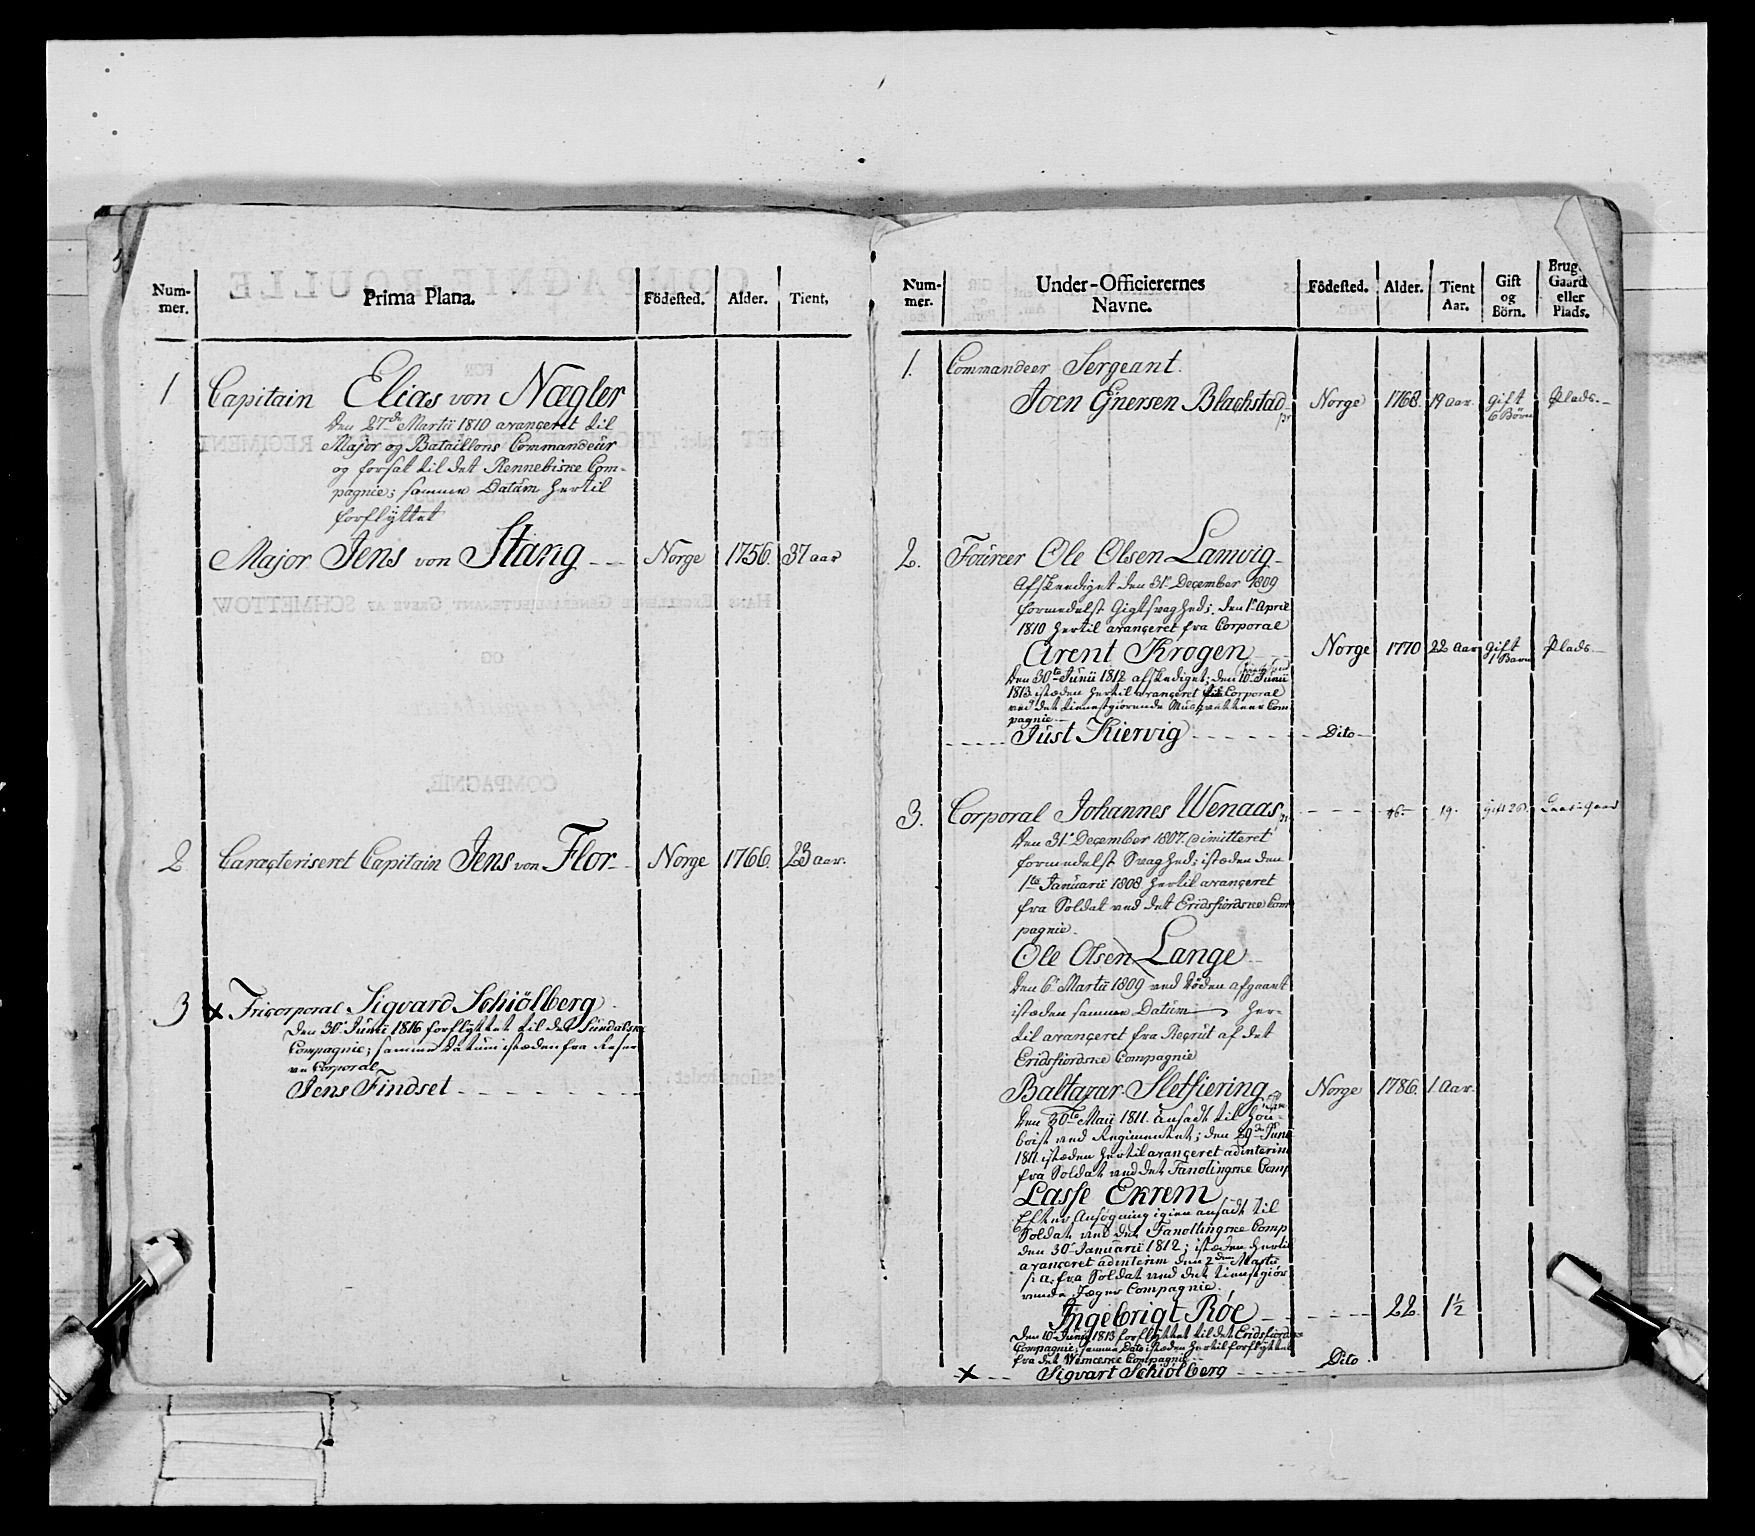 Num-
mer.
Prima Plana.
Födested.
Alder.
Tient.
1
Capitain Elias von Nægler
den 27de Martii 1810 avanceret til
Major og Bataillons Commandeur
og forsat til det Rennebiske Com-
pagnie; samme Datum hertil
forflyttet
Major Jens von Stang - - Norge 1756. 37 aar
2 Caracteriseret Capitain Jens von Flor - Norge 1766. 23 aar.
3 x Fricorporal Sigvard Schiölberg
den 30te Junii 1816 forflyttet til det Sundalske
Compagnie; samme Datum isteden fra Reser
ve Corporal
Jens Findset - - - - - - -
Num-
mer.
Under-Officierernes
Navne.
Födested.
Alder.
Tient
Aar.
Gift
og
Börn.
Brug.
Gaard
eller
Plads.
1. Commandeer Sergeant.
Joen Gnersen Blachstad Norge 1768. 19 aar Gift
6 Børn Plads. -
2. Foureer Ole Olsen Lamvig -
Afskeediget den 31te December 1809
formedelst Gigtsvaghed; den 1te April
1810 hertil avanceret fra Corporal
Arent Krogen - - Norge 1770 22 Aar Gift
1 Barn Plads -
den 30te Junii 1812 afskediget; den 10de Junii
1813 isteden hertil avanceret Corporal
ved det tienestgiørende Musqvetteer Com
pagnie -
- - - - - Just Kiervig - - - - - - - Dito -
3. Corporal Johannes Wenaas - - - 46. 19. gift
den 31te December 1807. Dimitteret
formedelst Svaghed; isteden den
1te Januarii 1808 hertil avanceret
fra Soldat ved det Eridsfiordske Com
pagnie.
Ole Olsen Lange -
den 6te Martii 1809 ved Døden afgaaet
isteden samme Datum her-
til avanceret fra Recrut af det
Eridsfiordske Compagnie
Baltazar Sletfiering Norge 1786. 1 Aar.
den 30te Maii 1811. ansadt til Hou-
boist ved Regimentet; den 29de Junii
1811 isteden hertil avanceret adinterim
fra Soldat ved det Tanolingske Comp
Lasse Ekrem
Efter Ansøgning igien ansadt til
Soldat ved det Tanollingske Comp
den 30te Januarii 1812; isteden hertil
avanceret adinterim den 2den Martii
s: a: fra Soldat ved det tienestgiør
rende Jæger Compagnie.
Ingebrigt Röe - - - - - 22. 1½
den 10de Junii 1813 forflyttet til det Eridsfiordske
Compagnie; samme Dato isteden hertil forflyttet
fra det Compagnie -
x - - - Sigvart Schiölberg - - - - Dito